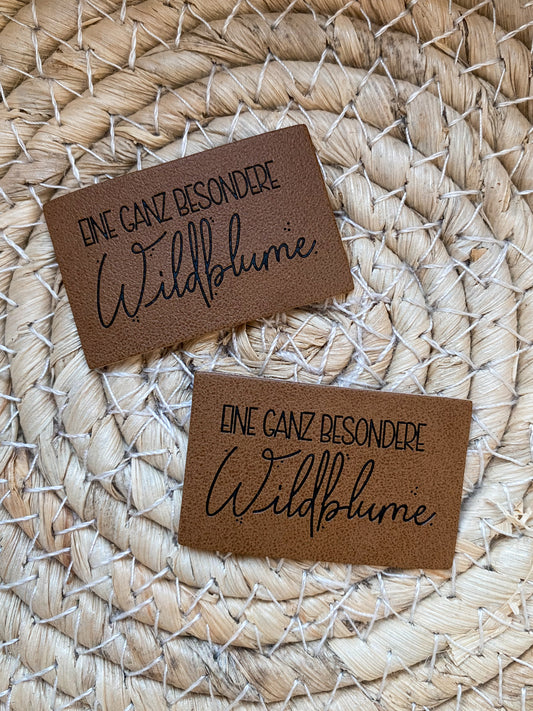 EINE GANZ BESONDERE
Wildblume.
EINE GANZ BESONDERE
Wildblume.